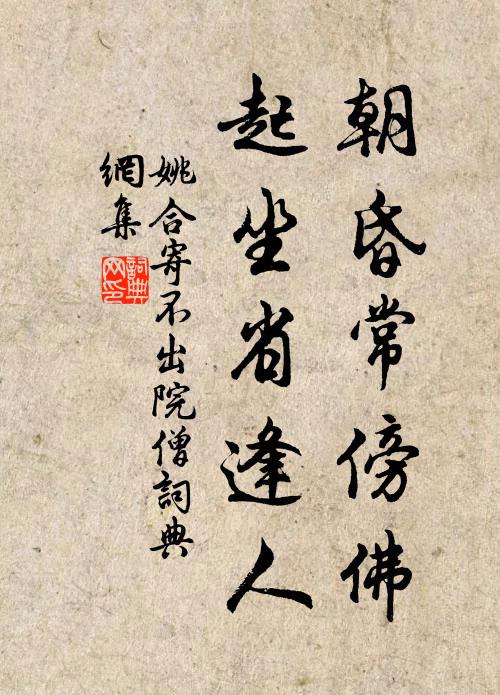 朝昏常傍佛
起坐省逢人
姚合寄不出院僧詞典
網集
詞典網印